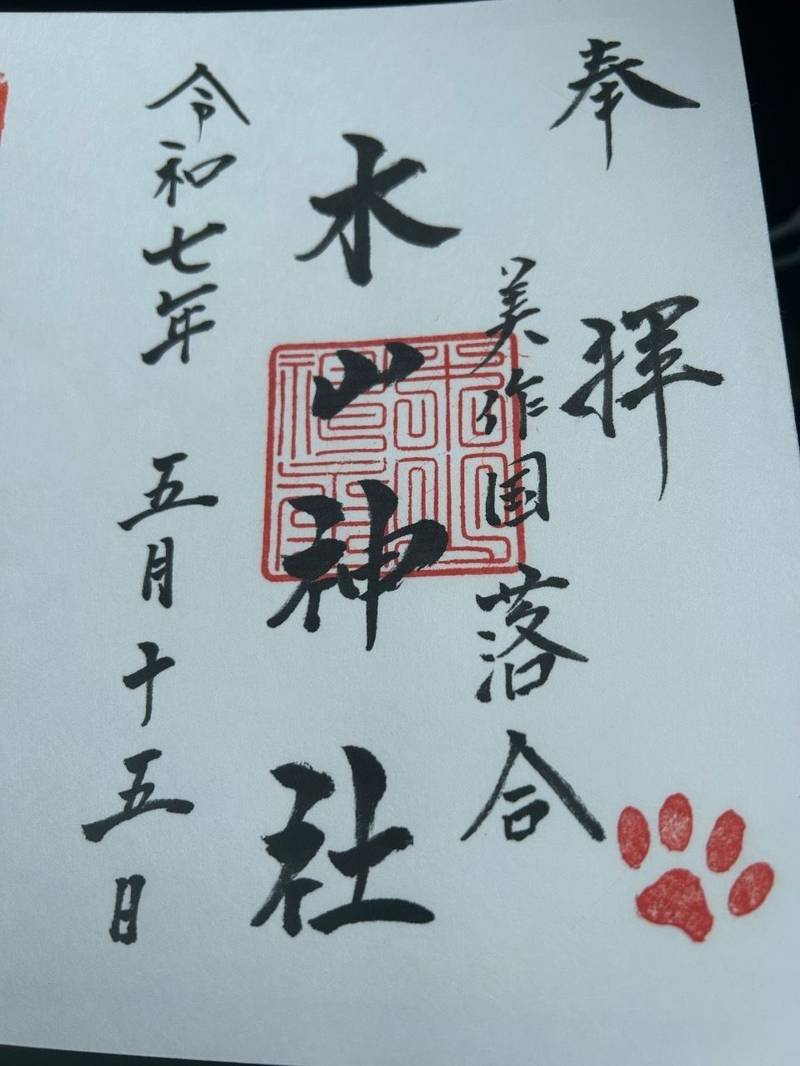 奉拝
美作国落合
木山神社
令和七年 五月十五日